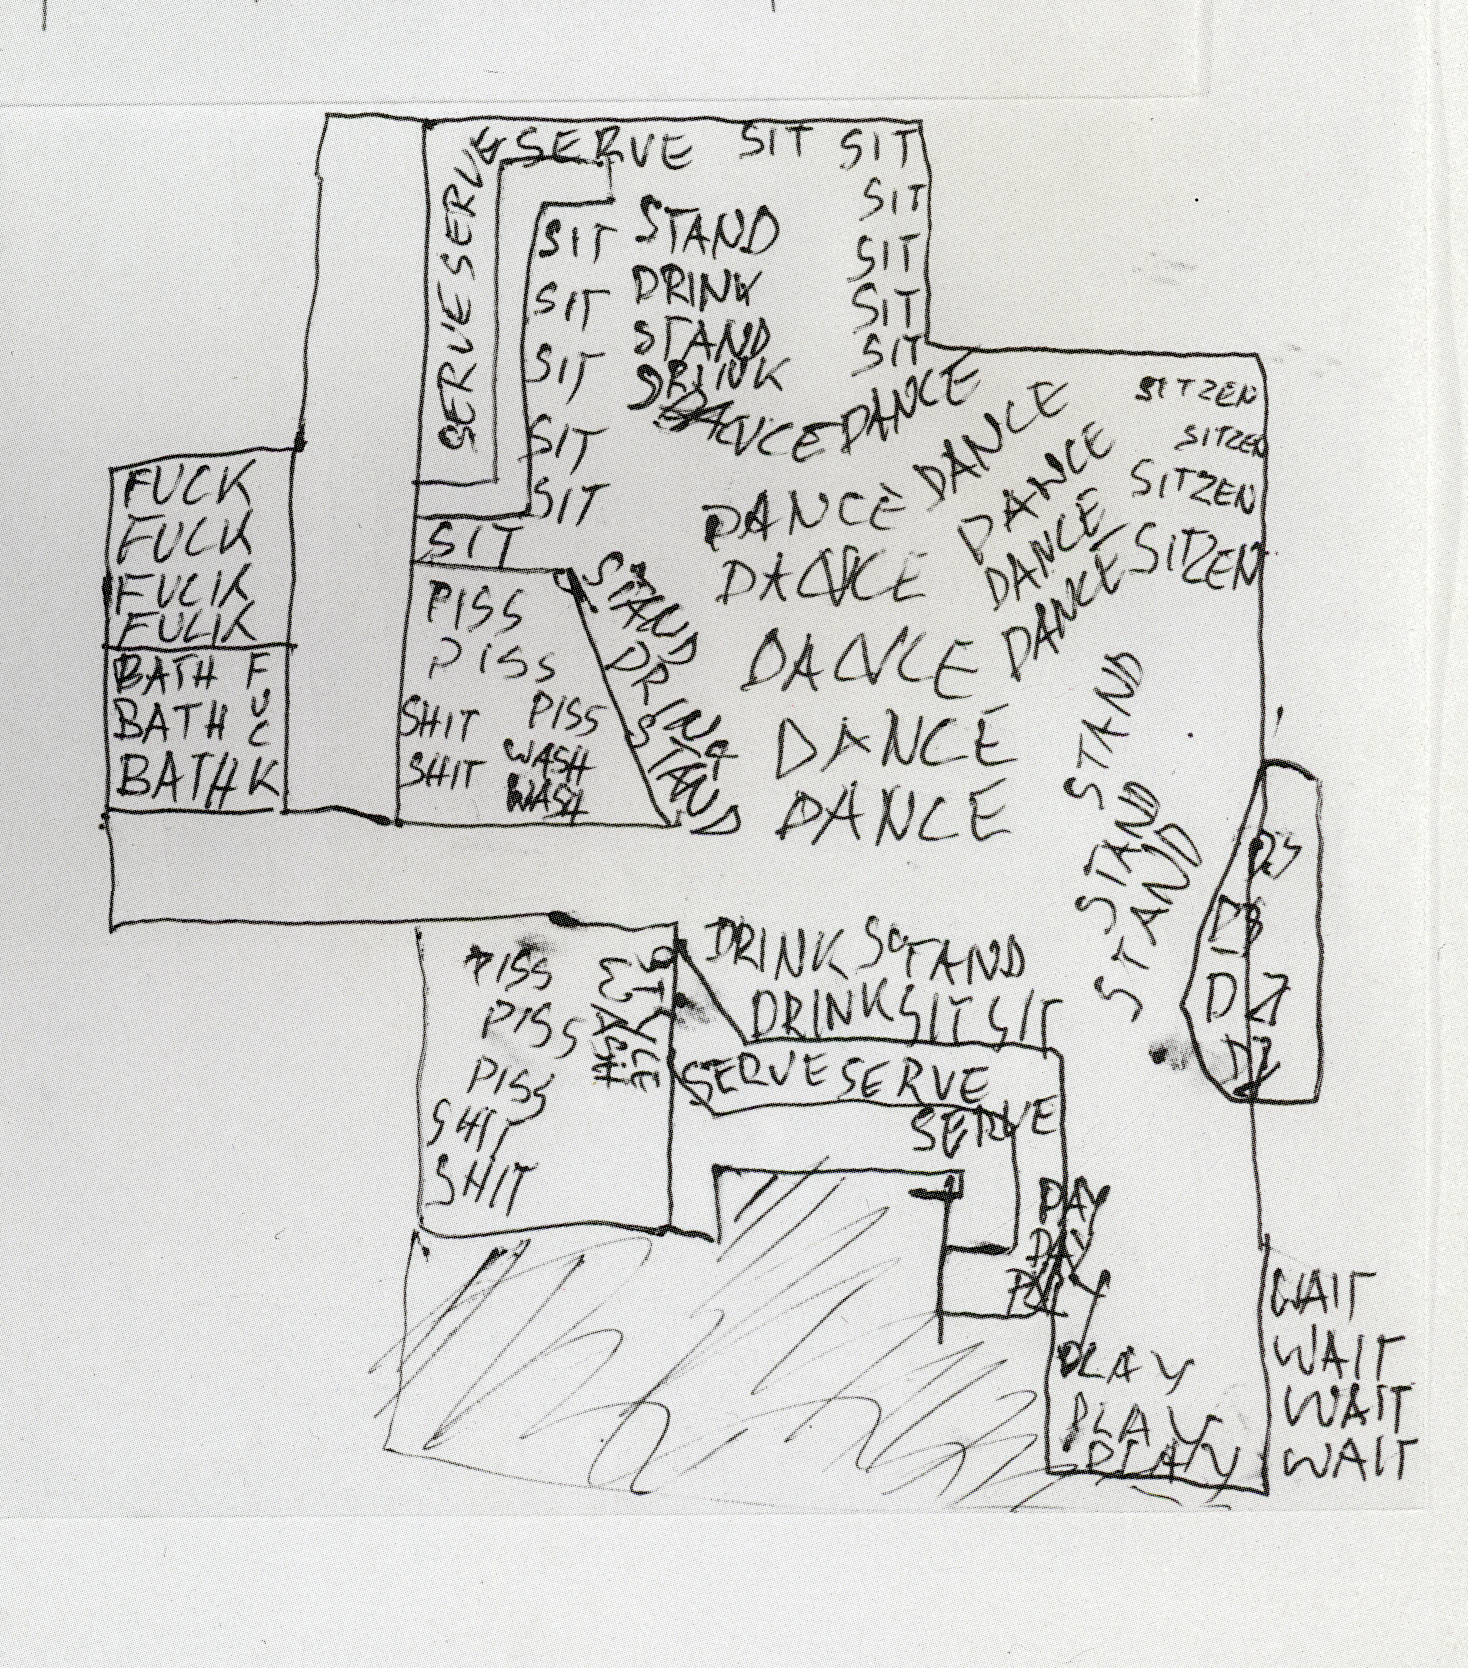 SERVE SIT SIT
SERVE
SERVE
SIT
SIT STAND
SIT
SIT DRINK
SIT
SIT STAND
SIT
DRINK
SIT
SIT
DANCE DANCE
DANCE
DANCE
DANCE
DANCE
DANCE
DANCE
DANCE
DANCE
DANCE
SITZEN
SITZEN
SITZEN
SITZEN
SIT
FUCK
FUCK
FUCK
FUCK
BATH
BATH
BATH
FUCK
PISS
PISS
SHIT PISS
SHIT WASH
WASH
STAND
DRINK
STAND
STAND
STAND
STAND
DRINK STAND
DRINK SIT SIT
PISS
PISS
PISS
SHIT
SHIT
SERVE SERVE
SERVE
PAY
PAY
PAY
PLAY
PLAY
PLAY
WAIT
WAIT
WAIT
WAIT